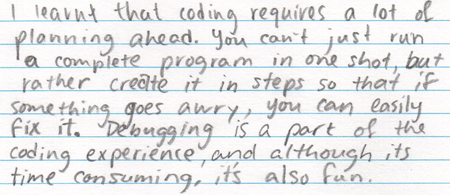 I learnt that coding requires a lot of
planning ahead. You can't just run
a complete program in one shot, but
rather create it in steps so that if
something goes awry, you can easily
fix it. Debugging is a part of the
coding experience, and although its
time consuming, it's also fun.